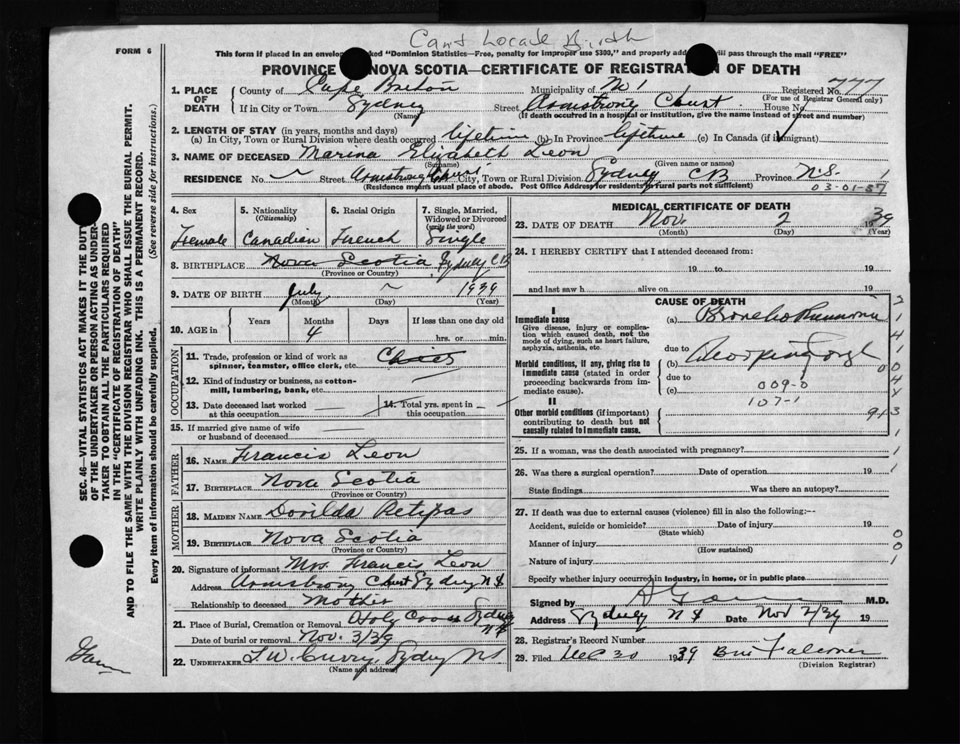 Cant Locate Birth
FORM 6
This form if placed in an envelope marked "Dominion Statistics—Free, penalty for improper use $300," and properly addressed will pass through the mail "FREE"
PROVINCE OF NOVA SCOTIA—CERTIFICATE OF REGISTRATION OF DEATH
1. PLACE OF DEATH County of Cape Breton Municipality of No 1 Registered No. 777
(For use of Registrar General only)
If in City or Town Sydney (Name) Street Armstrong Court House No
(If death occurred in a hospital or institution, give the name instead of street and number)
2. LENGTH OF STAY (in years, months and days)
(a) In City, Town or Rural Division where death occurred lifetime (b) In Province lifetime (c) In Canada (if immigrant)
3. NAME OF DECEASED Marina Elizabeth Leon
(Surname) (Given name or names)
RESIDENCE No. Street Armstrong Court City, Town or Rural Division Sydney CB Province N.S. 1
(Residence means usual place of abode. Post Office Address for residents in rural parts not sufficient)
03-01-57
4. Sex Female
5. Nationality (Citizenship) Canadian
6. Racial Origin French
7. Single, Married, Widowed or Divorced (write the word) Single
8. BIRTHPLACE Nova Scotia, Sydney C.B.
(Province or Country)
9. DATE OF BIRTH July 1939
(Month) (Day) (Year)
10. AGE in Years Months Days If less than one day old
4 hrs. or min.
OCCUPATION
11. Trade, profession or kind of work as spinner, teamster, office clerk, etc.
12. Kind of industry or business, as cotton-mill, lumbering, bank, etc.
13. Date deceased last worked at this occupation
14. Total yrs. spent in this occupation
15. If married give name of wife or husband of deceased
FATHER
16. Name Francis Leon
17. Birthplace Nova Scotia
(Province or Country)
MOTHER
18. Maiden Name Dorilda Petipas
19. Birthplace Nova Scotia
(Province or Country)
20. Signature of informant Mrs. Francis Leon
Address Armstrong Court Sydney N S
Relationship to deceased Mother
21. Place of Burial, Cremation or Removal Holy Cross Sydney NS
Date of burial or removal Nov. 3/39
22. UNDERTAKER T. W. Curry, Sydney NS
(Name and address)
MEDICAL CERTIFICATE OF DEATH
23. DATE OF DEATH Nov 2 1939
(Month) (Day) (Year)
24. I HEREBY CERTIFY that I attended deceased from:
19 to 19
and last saw h alive on 19
CAUSE OF DEATH
I
Immediate cause
Give disease, injury or complication which caused death, not the mode of dying, such as heart failure, asphyxia, asthenia, etc.
(a) Broncho Pneumonia
due to
Morbid conditions, if any, giving rise to immediate cause (stated in order proceeding backwards from immediate cause).
(b) Whooping Cough
due to
(c) 009-0
107-1
II
Other morbid conditions (if important) contributing to death but not causally related to immediate cause.
25. If a woman, was the death associated with pregnancy?
26. Was there a surgical operation? Date of operation 19
State findings Was there an autopsy?
27. If death was due to external causes (violence) fill in also the following:—
Accident, suicide or homicide? Date of injury 19
(State which)
Manner of injury
(How sustained)
Nature of injury
Specify whether injury occurred in industry, in home, or in public place
Signed by M.D.
Address Sydney N S Date Nov 2/39 19
28. Registrar's Record Number
29. Filed Dec 30 1939 Falconer
(Division Registrar)
SEC. 46—VITAL STATISTICS ACT MAKES IT THE DUTY
OF THE UNDERTAKER OR PERSON ACTING AS UNDER-
TAKER TO OBTAIN ALL THE PARTICULARS REQUIRED
IN THE "CERTIFICATE OF REGISTRATION OF DEATH"
AND TO FILE THE SAME WITH THE DIVISION REGISTRAR WHO SHALL ISSUE THE BURIAL PERMIT.
WRITE PLAINLY WITH UNFADING INK. THIS IS A PERMANENT RECORD.
Every item of information should be carefully supplied. (See reverse side for instructions.)